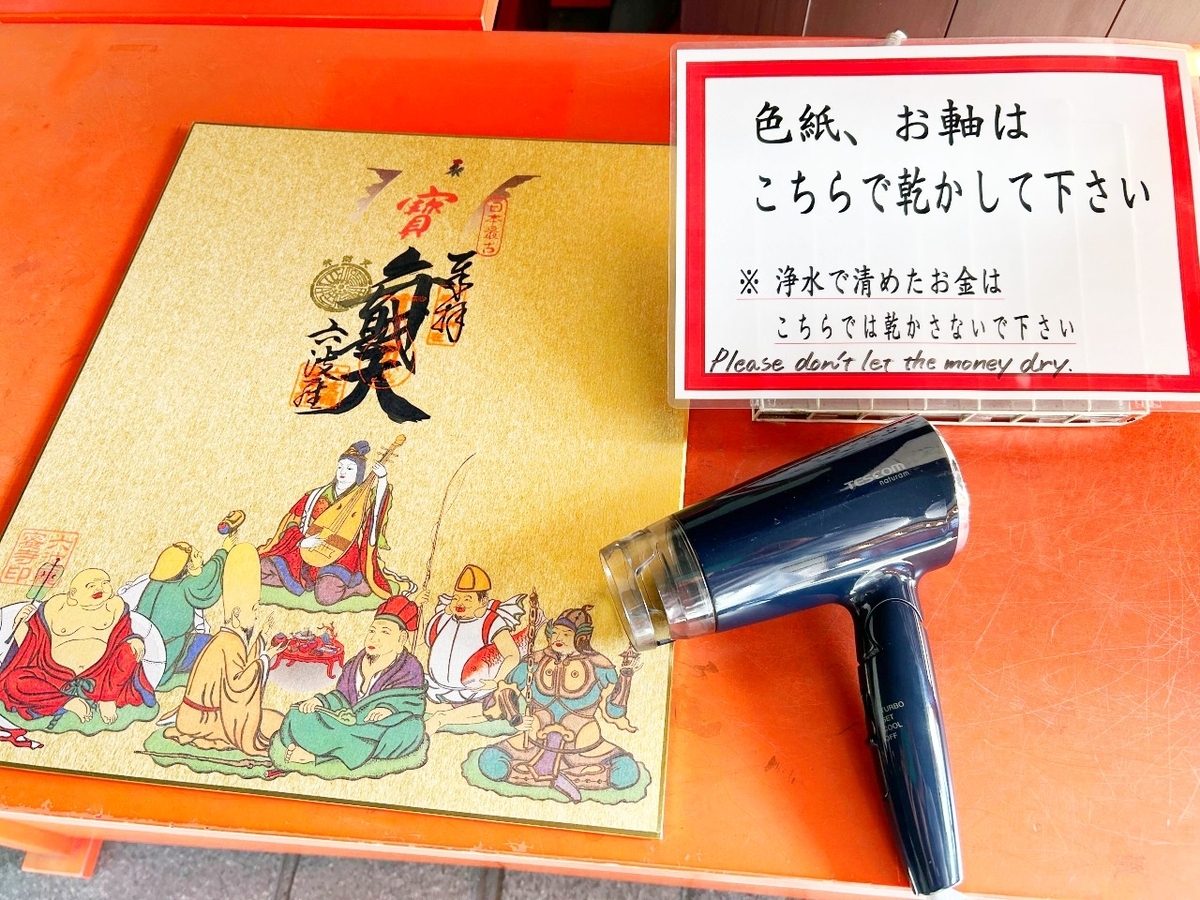 色紙、お軸は
こちらで乾かして下さい
※ 浄水で清めたお金は
こちらでは乾かさないで下さい
Please don't let the money dry.
寳
日本最古
奉拝
六波羅
TESCOM
naturam
TURBO
SET
COOL
OFF